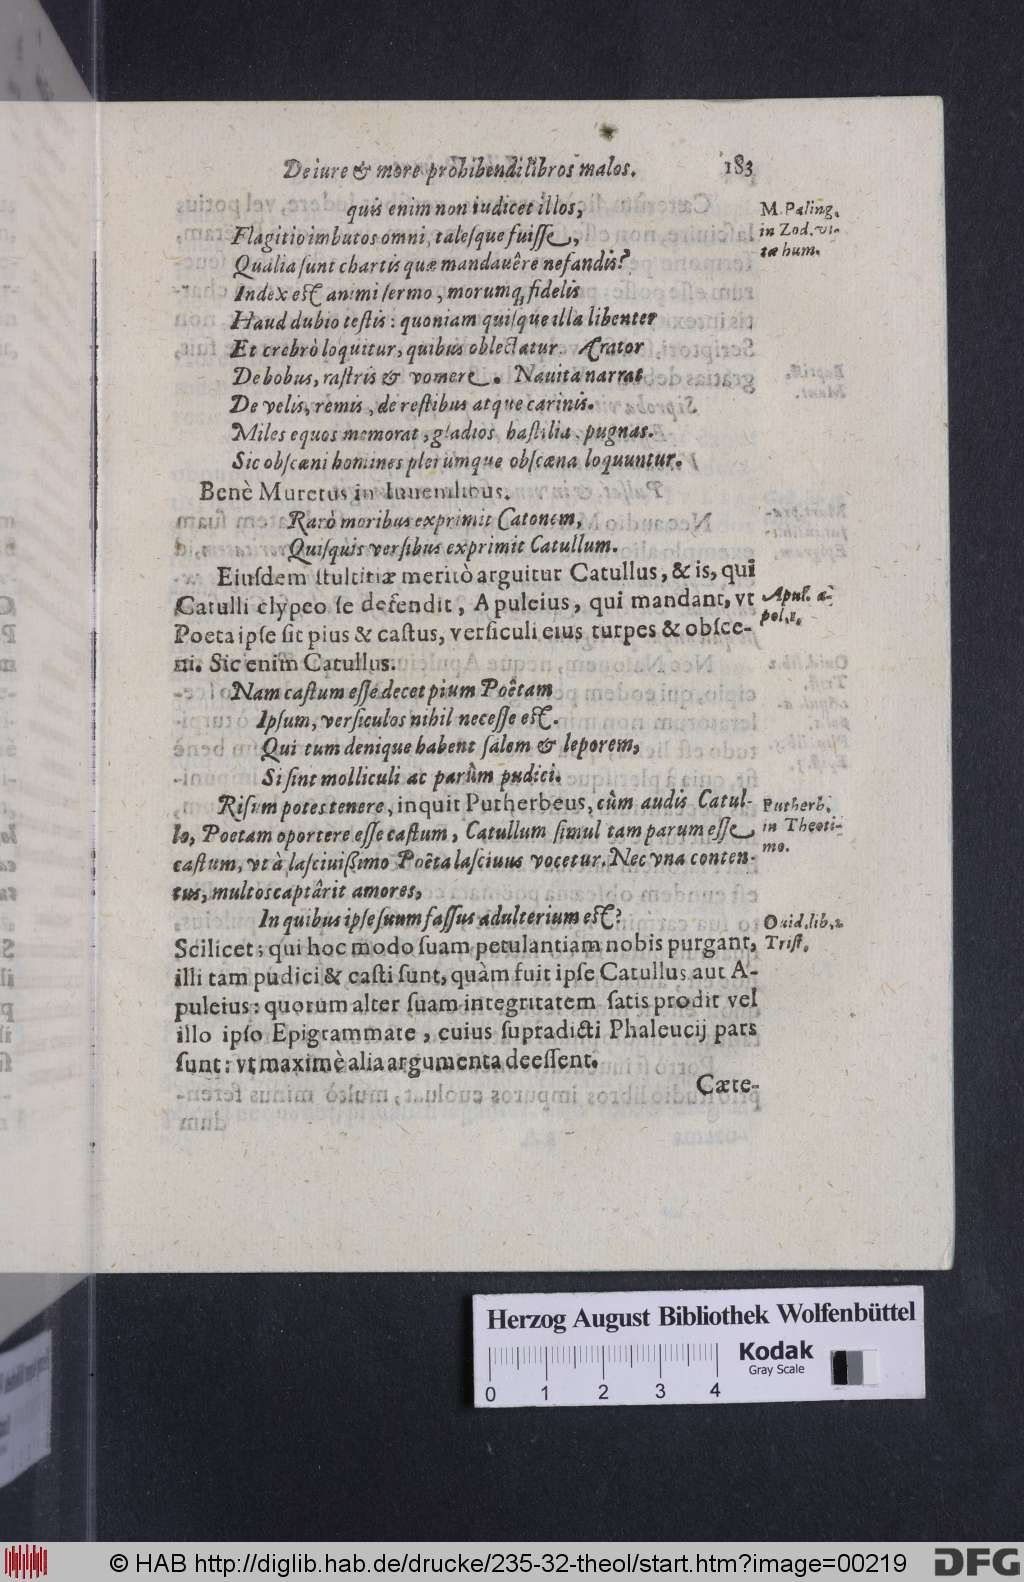 De iure & more prohibendi libros malos. 183
quis enim non iudicet illos,
Flagitio imbutos omni, talesque fuisse,
Qualia sunt chartis quæ mandauêre nefandis?
Index est animi sermo, morumq; fidelis
Haud dubio testis: quoniam quisque illa libenter
Et crebrò loquitur, quibus oblectatur. Arator
De bobus, rastris & vomere. Nauita narrat
De velis, remis, de restibus atque carinis.
Miles equos memorat, gladios, hastilia, pugnas.
Sic obscæni homines plerumque obscæna loquuntur.
M. Paling.
in Zod. vi-
tæ hum.
Benè Muretus in Iuuenilibus.
Rarò moribus exprimit Catonem,
Quisquis versibus exprimit Catullum.
Eiusdem stultitiæ meritò arguitur Catullus, & is, qui
Catulli clypeo se defendit, Apuleius, qui mandant, vt
Poeta ipse sit pius & castus, versiculi eius turpes & obsce-
ni. Sic enim Catullus.
Apul. a-
pol. 1.
Nam castum esse decet pium Poêtam
Ipsum, versiculos nihil necesse est.
Qui tum denique habent salem & leporem,
Si sint molliculi ac parùm pudici.
Risum potes tenere, inquit Putherbeus, cùm audis Catul-
lo, Poetam oportere esse castum, Catullum simul tam parum esse
castum, vt à lasciuißimo Poêta lasciuus vocetur. Nec vna conten-
tus, multos captârit amores,
In quibus ipse suum fassus adulterium est?
Putherb.
in Theoti-
mo.
Ouid. lib. 2
Trist.
Scilicet; qui hoc modo suam petulantiam nobis purgant,
illi tam pudici & casti sunt, quàm fuit ipse Catullus aut A-
puleius: quorum alter suam integritatem satis prodit vel
illo ipso Epigrammate, cuius supradicti Phaleucij pars
sunt: vt maximè alia argumenta deessent.
Cæte-
Herzog August Bibliothek Wolfenbüttel
Kodak
Gray Scale
0 1 2 3 4
© HAB http://diglib.hab.de/drucke/235-32-theol/start.htm?image=00219
DFG